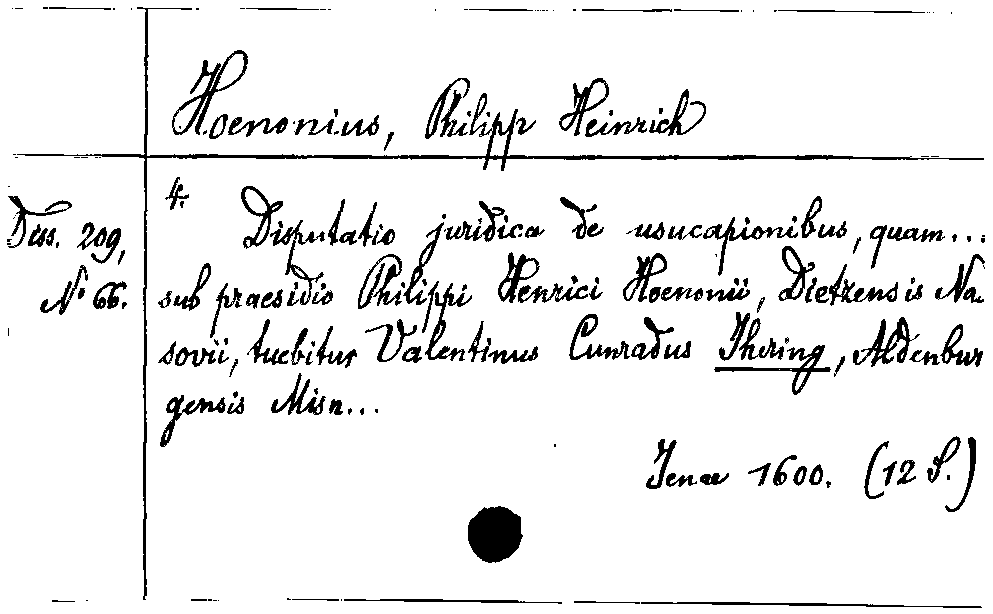 Hoenonius, Philipp Heinrich
4.
Diss. 209,
No 66.
Disputatio juridica de usucapionibus, quam...
sub praesidio Philippi Henrici Hoenonii, Dietzensis Na
sovii, tuebitur Valentinus Cunradus Ihering, Aldenbur
gensis Misn...
Jenae 1600. (12 S.)